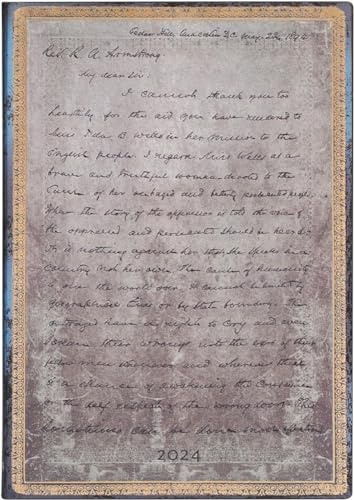 Cedar Hill Anacostia D.C. May 22, 1894
Rev. R. A. Armstrong.
My dear Sir.
I cannot thank you too
heartily for the aid you have rendered to
Miss Ida B. Wells in her mission to the
English people. I regard Miss Wells as a
brave and truthful woman devoted to the
cause of her outraged and bitterly persecuted people.
When the story of the oppressor is told the voice of
the oppressed and persecuted should be heard.
It is nothing against her that she speaks in a
Country not her own. The cause of humanity
is one the world over. It cannot be limited by
geographical lines or by state boundary. The
outraged have a right to cry and even
scream their wrongs into the ears of their
fellow men whenever and wherever there
is a chance of awakening the conscience
or the self respect of the wrong doer. This
sometimes can be done
2024